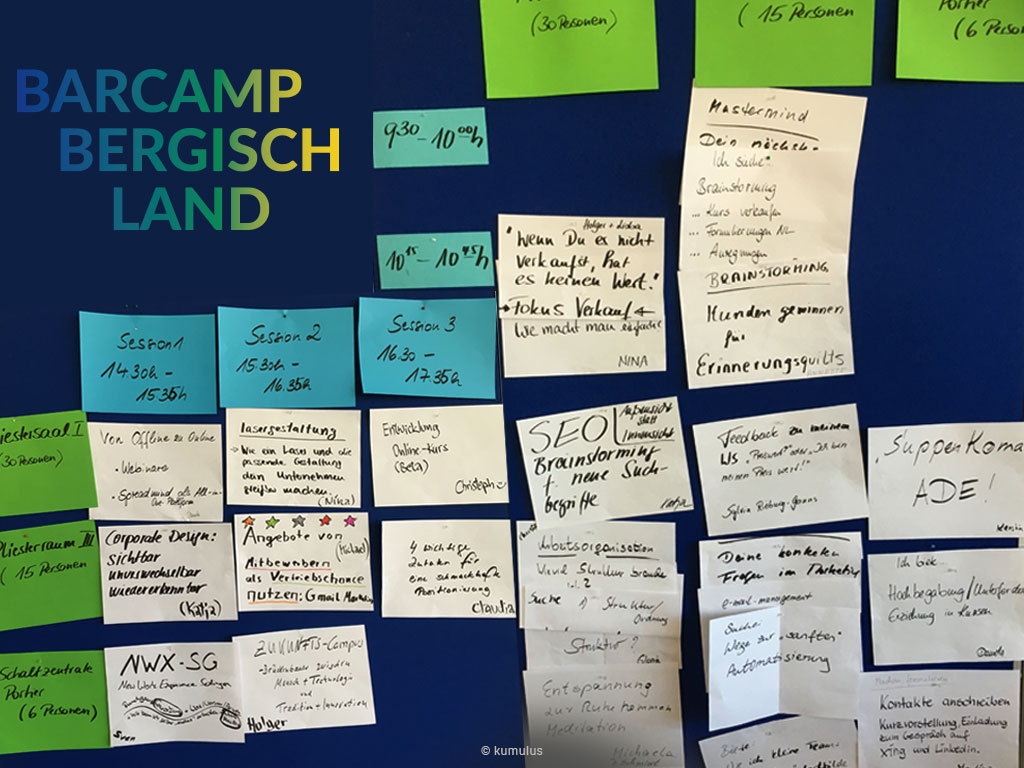 BARCAMP
BERGISCH
LAND
(30 Personen)
(15 Personen
(6 Person
9 30 – 10 00 h
10 15 – 10 45 h
Session 1
14.30h –
15.35h
Session 2
15.30h –
16.35h
Session 3
16.30 –
17.35h
Holger +
"Wenn Du es nicht
verkaufst, hat
es keinen Wert."
Fokus Verkauf
Wie macht man
NINA
Mastermind
Dein nächst-
Ich suche
Brainstorming
... Kurs verkaufen
... Formulierungen NL
... Anregungen
BRAINSTORMING
Kunden gewinnen
für
Erinnerungsquilts
iestersaal I
(30 Personen)
Von Offline zu Online
• Webinare
• Spreadmind als All-in-
One
Lasergestaltung
Wie ein Laser und die
passende Gestaltung
dein Unternehmen
machen.
Entwicklung
Online-Kurs
(Beta)
Christoph
SEO
Außensicht
statt
Innensicht
Brainstorming
f. neue Such-
begriffe
Katja
Feedback zu meinem
WS „Preiswert" oder „Ich bin
meinen Preis wert!"
Sylvia
„Suppenkoma
ADE!
Kerstin
Pliesterraum III
(15 Personen
Corporate Design:
Sichtbar
unverwechselbar
wiedererkennbar
(Katja)
Angebote von
(Michael)
Mitbewerbern
als Vertriebschance
nutzen: Gmail
4 wichtige
Zutaten für
eine schmackhafte
Positionierung
Claudia
Arbeitsorganisation
Wieviel Struktur brauche
ich?
Suche
Struktur/
Ordnung
Struktur?
Entspannung
zur Ruhe kommen
Meditation
Michaela
Deine konkreten
Fragen im Marketing
e-mail-management
Suche:
Wege zur „sanften"
Automatisierung
Biete:
kleine Teams
Ich bin
Hochbegabung/Unterforder
Erziehung in Kursen
Kontakte anschreiben
Kurzvorstellung, Einladung
zum Gespräch auf
xing und LinkedIn.
Schaltzentrale
Pörtner
(6 Personen)
NWX-SG
New Work Experience Solingen
Sven
ZUKUNFTS-Campus
– Brückenbauer zwischen
Mensch + Technologie
und
Tradition + Innovation
Holger
© kumulus